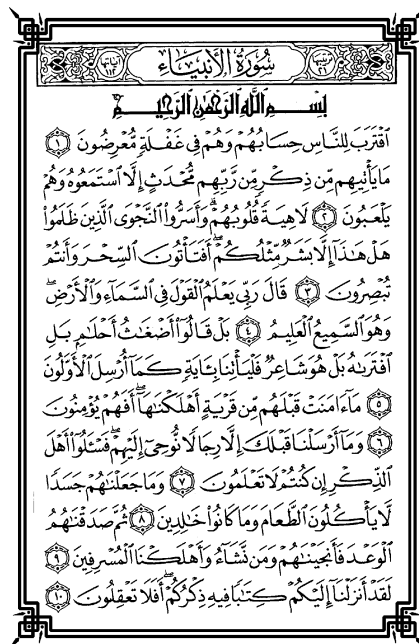 ترتيبها ٢١ سُورَةُ الأَنبِيَاءِ آياتها ١١٢
بِسْمِ ٱللَّهِ ٱلرَّحْمَٰنِ ٱلرَّحِيمِ
ٱقْتَرَبَ لِلنَّاسِ حِسَابُهُمْ وَهُمْ فِي غَفْلَةٍ مُّعْرِضُونَ ١
مَا يَأْتِيهِم مِّن ذِكْرٍ مِّن رَّبِّهِم مُّحْدَثٍ إِلَّا ٱسْتَمَعُوهُ وَهُمْ
يَلْعَبُونَ ٢ لَاهِيَةً قُلُوبُهُمْ ۗ وَأَسَرُّوا۟ ٱلنَّجْوَى ٱلَّذِينَ ظَلَمُوا۟
هَلْ هَٰذَآ إِلَّا بَشَرٌ مِّثْلُكُمْ ۖ أَفَتَأْتُونَ ٱلسِّحْرَ وَأَنتُمْ
تُبْصِرُونَ ٣ قَالَ رَبِّي يَعْلَمُ ٱلْقَوْلَ فِي ٱلسَّمَآءِ وَٱلْأَرْضِ ۖ
وَهُوَ ٱلسَّمِيعُ ٱلْعَلِيمُ ٤ بَلْ قَالُوٓا۟ أَضْغَٰثُ أَحْلَٰمٍ بَلِ
ٱفْتَرَىٰهُ بَلْ هُوَ شَاعِرٌ فَلْيَأْتِنَا بِـَٔايَةٍ كَمَآ أُرْسِلَ ٱلْأَوَّلُونَ
٥ مَآ ءَامَنَتْ قَبْلَهُم مِّن قَرْيَةٍ أَهْلَكْنَٰهَآ ۖ أَفَهُمْ يُؤْمِنُونَ
٦ وَمَآ أَرْسَلْنَا قَبْلَكَ إِلَّا رِجَالًا نُّوحِيٓ إِلَيْهِمْ ۖ فَسْـَٔلُوٓا۟ أَهْلَ
ٱلذِّكْرِ إِن كُنتُمْ لَا تَعْلَمُونَ ٧ وَمَا جَعَلْنَٰهُمْ جَسَدًا
لَّا يَأْكُلُونَ ٱلطَّعَامَ وَمَا كَانُوا۟ خَٰلِدِينَ ٨ ثُمَّ صَدَقْنَٰهُمُ
ٱلْوَعْدَ فَأَنجَيْنَٰهُمْ وَمَن نَّشَآءُ وَأَهْلَكْنَا ٱلْمُسْرِفِينَ ٩
لَقَدْ أَنزَلْنَآ إِلَيْكُمْ كِتَٰبًا فِيهِ ذِكْرُكُمْ ۖ أَفَلَا تَعْقِلُونَ ١٠